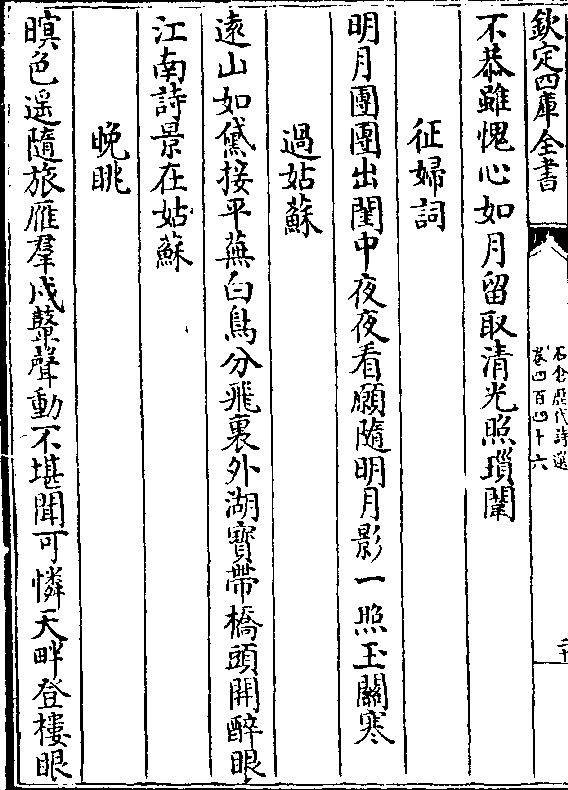 欽定四庫全書
石倉歷代詩選
卷四百四十六
二十
不恭雖愧心如月留取清光照瑣闈
征婦詞
明月團團出閨中夜夜看願隨明月影一照玉關寒
過姑蘇
遠山如黛接平蕪白鳥分飛裏外湖寶帶橋頭開醉眼
江南詩景在姑蘇
晚眺
暝色遥隨旅雁羣戍鼙聲動不堪聞可憐天畔登樓眼